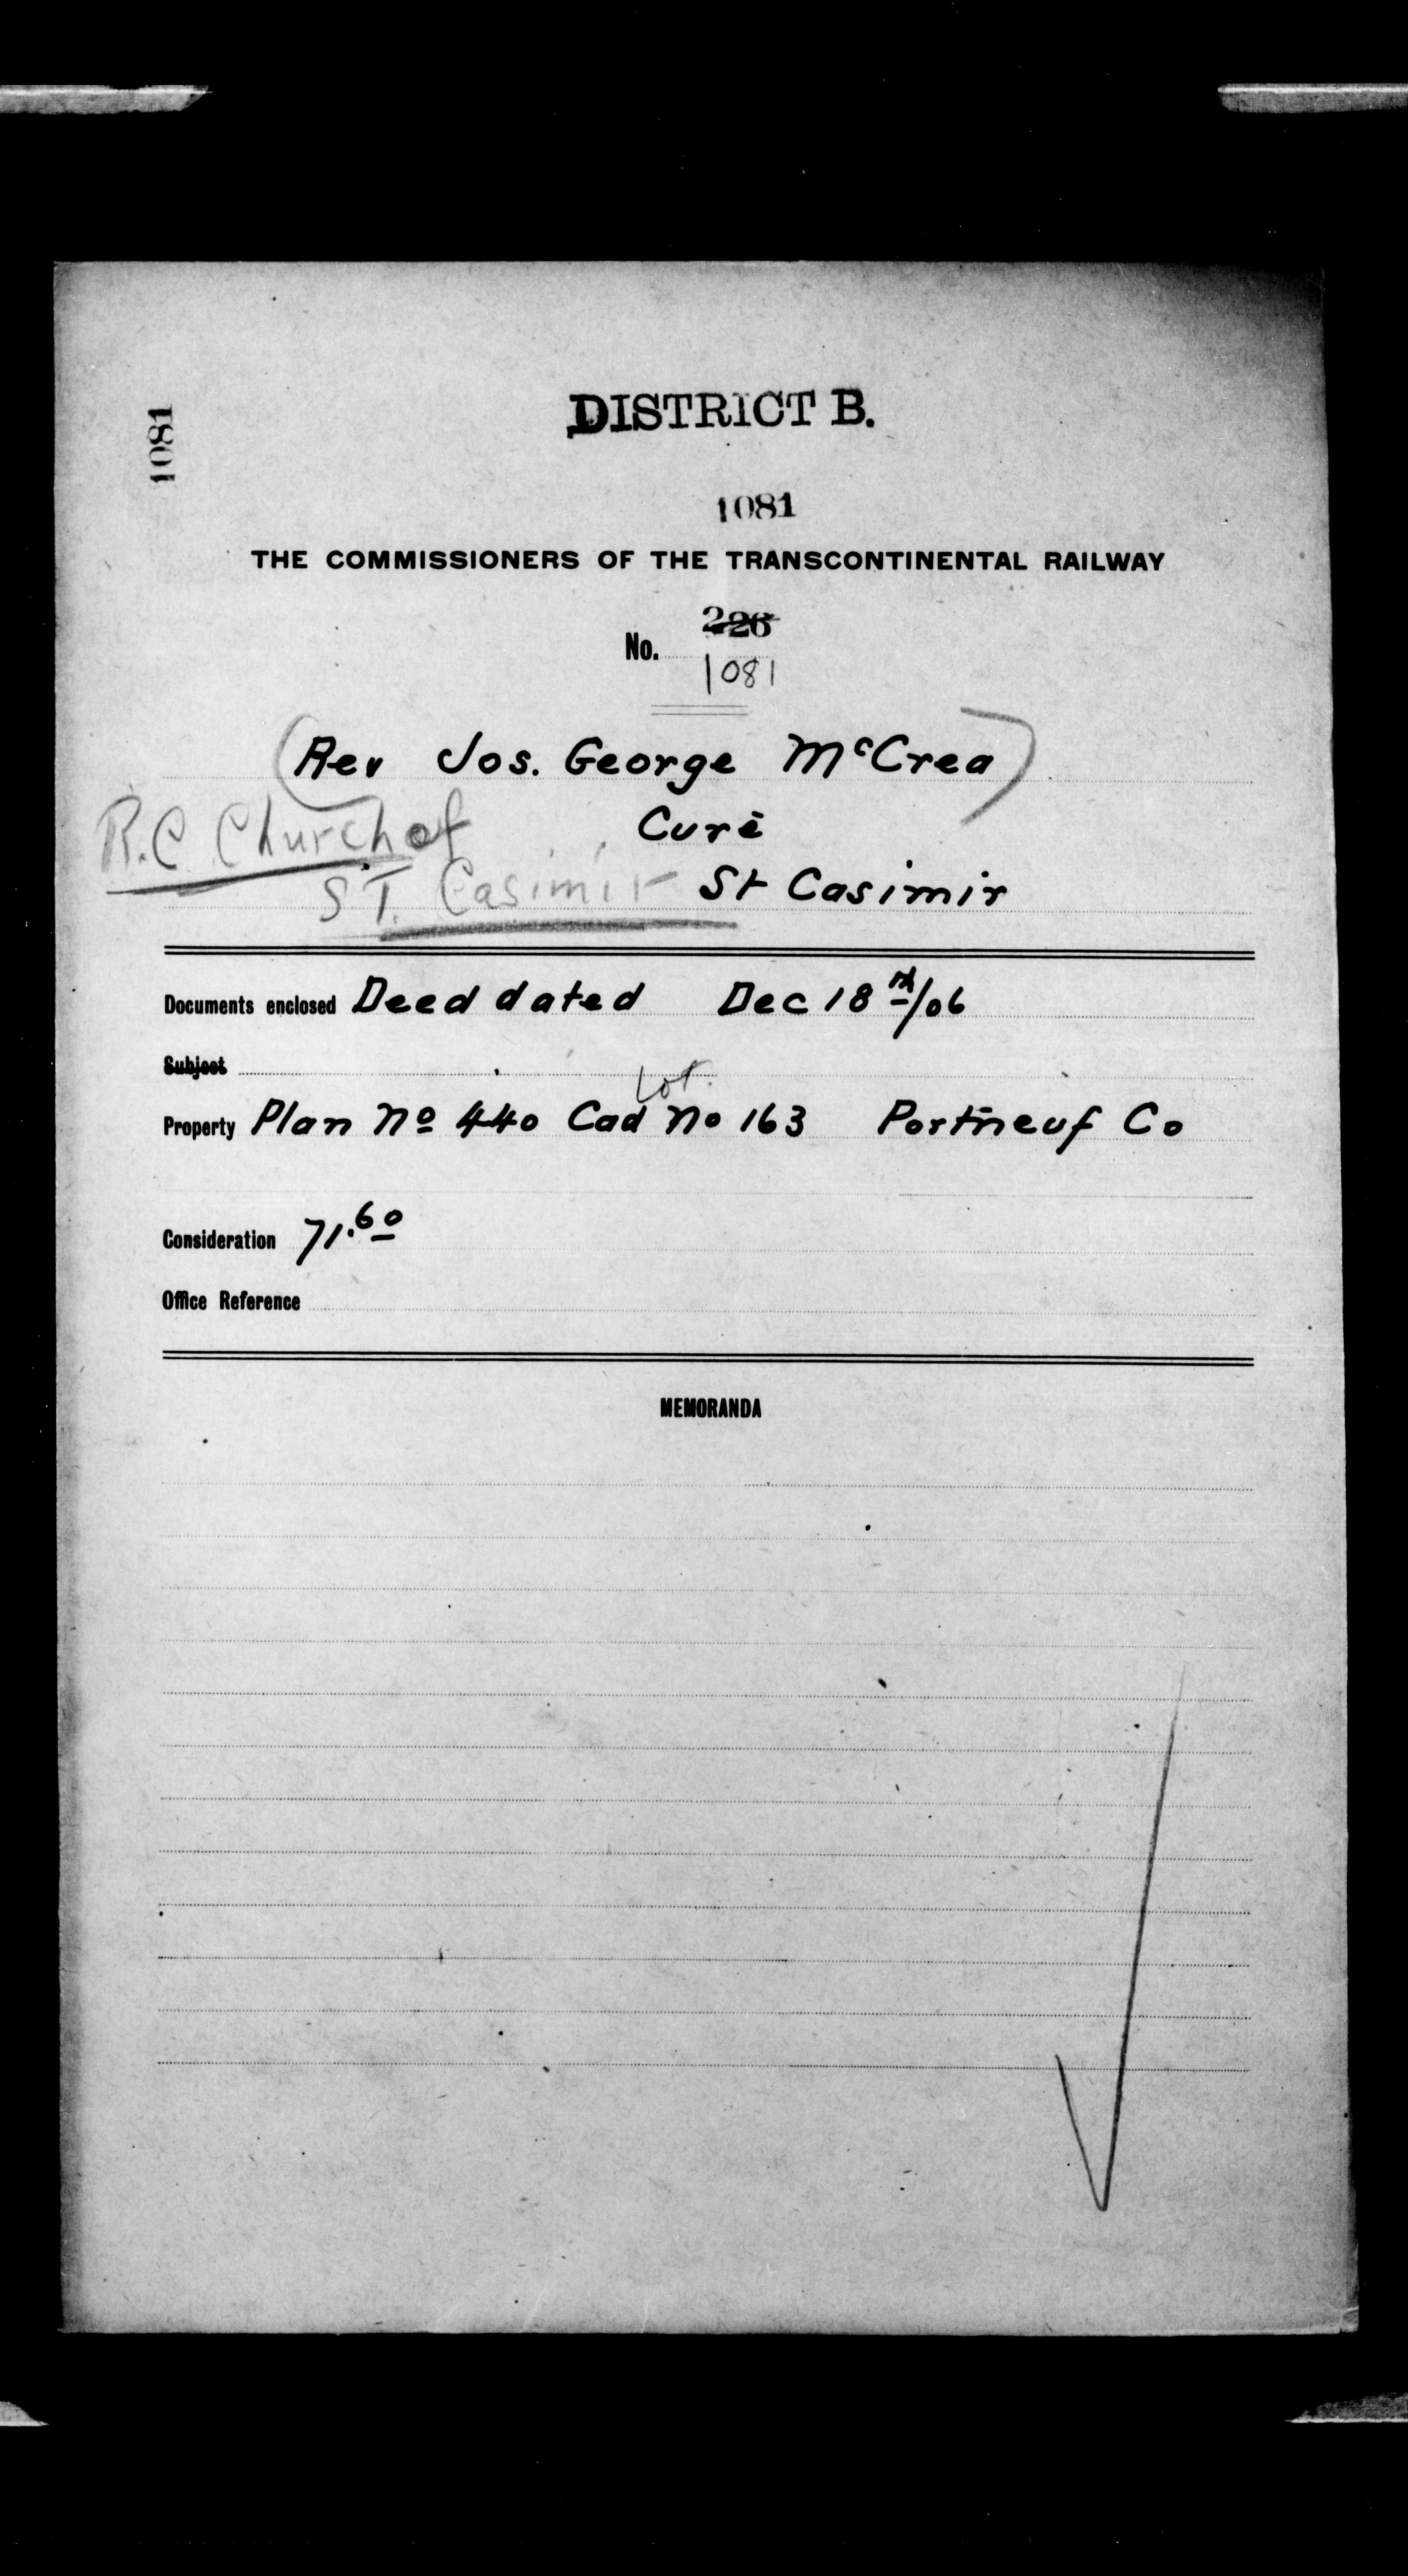 1081
DISTRICT B.
1081
THE COMMISSIONERS OF THE TRANSCONTINENTAL RAILWAY
No. 226
1081
(Rev Jos. George McCrea)
R.C Church of
Curé
ST. Casimir
St Casimir
Documents enclosed Deed dated Dec 18 rd/06
Subject
Lot
Property Plan No 440 Cad No 163 Portneuf Co
Consideration 71.60
Office Reference
MEMORANDA